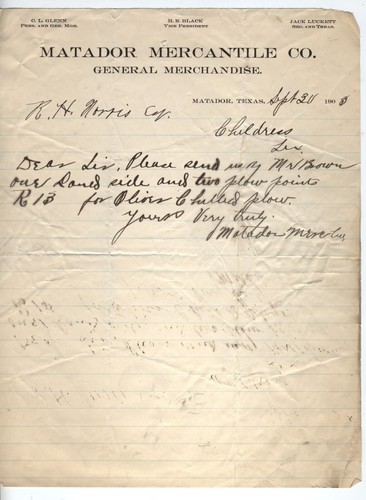 C. L. GLENN
PRES. AND GEN. MGR.
H. H. BLACK
VICE PRESIDENT
JACK LUCKETT
SEC. AND TREAS.
MATADOR MERCANTILE CO.
GENERAL MERCHANDISE.
MATADOR, TEXAS, Sept 30 1903
R. H. Norris Esq.
Childress
Tex
Dear Sir, Please send us by Mr Brown
one Land side and two plow points
R 13 for Oliver Chilled plow.
Yours Very truly.
Matador Merc Co